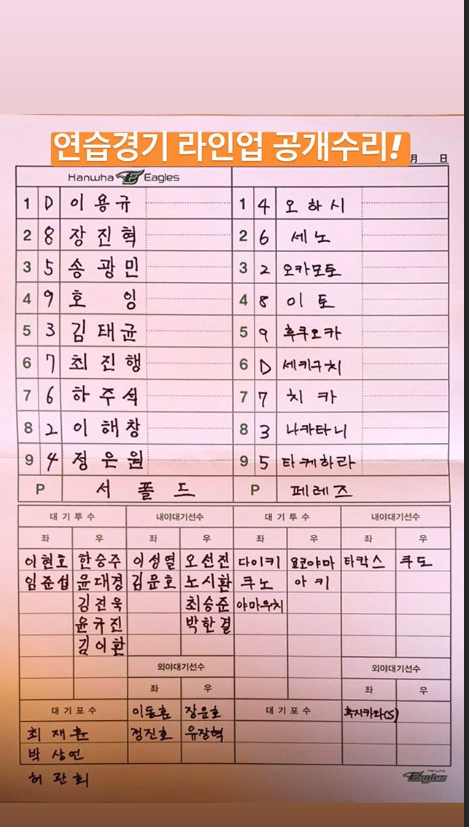 연습경기 라인업 공개수리!
월 일
Hanwha Eagles
1 D 이용규 1 4 오하시
2 8 장진혁 2 6 세노
3 5 송광민 3 2 오카모토
4 9 호잉 4 8 이토
5 3 김태균 5 9 후쿠오카
6 7 최진행 6 D 세키구치
7 6 하주석 7 7 치카
8 2 이해창 8 3 나카타니
9 4 정은원 9 5 타케하라
P 서폴드 P 페레즈
대기투수 내야대기선수 대기투수 내야대기선수
좌 우 좌 우 좌 우 좌 우
이현호 한승주 이성열 오선진 다이키 요코야마 타칵스 쿠도
임준섭 윤대경 김문호 노시환 쿠노 아키
김진욱 최승준 야마우치
윤규진 박한결
김이환
외야대기선수 외야대기선수
좌 우 좌 우
대기포수 이동훈 장운호 대기포수 후지카와(S)
최재훈 정진호 유장혁
박상언
허관회
Hanwha Eagles